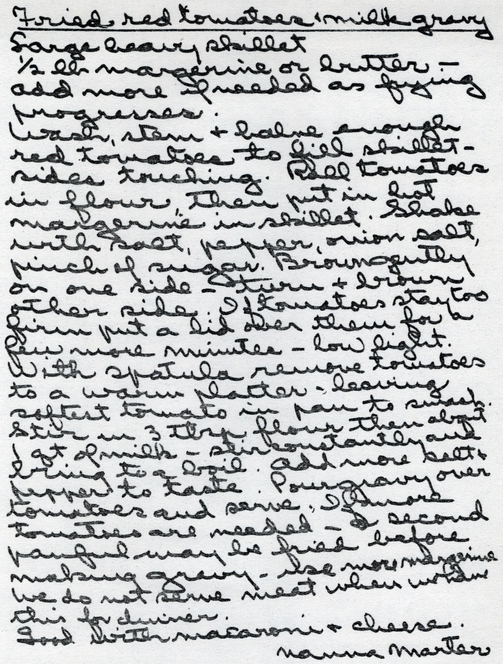 Fried red tomatoes & milk gravy
Large heavy skillet
1/2 lb margerine or butter -
add more if needed as frying
progresses.
Wash, stem & halve enough
red tomatoes to fill skillet -
sides touching. Roll tomatoes
in flour, then put in hot
margerine in skillet. Shake
with salt, pepper, onion salt,
pinch of sugar. Brown gently
on one side - turn & brown
other side. If tomatoes stay too
firm put a lid over them for a
few more minutes - low light.
With spatula remove tomatoes
to a warm platter - leaving
softest tomato in pan to smash.
Stir in 3 Tbsp flour then about
1 qt of milk - stir constantly and
bring to a boil. Add more salt &
pepper to taste. Pour gravy over
tomatoes and serve. If more
tomatoes are needed - a second
panful may be fried before
making gravy. Use more margerine
we do not serve meat when we have
this for dinner.
Good with macaroni & cheese.
nanna marter